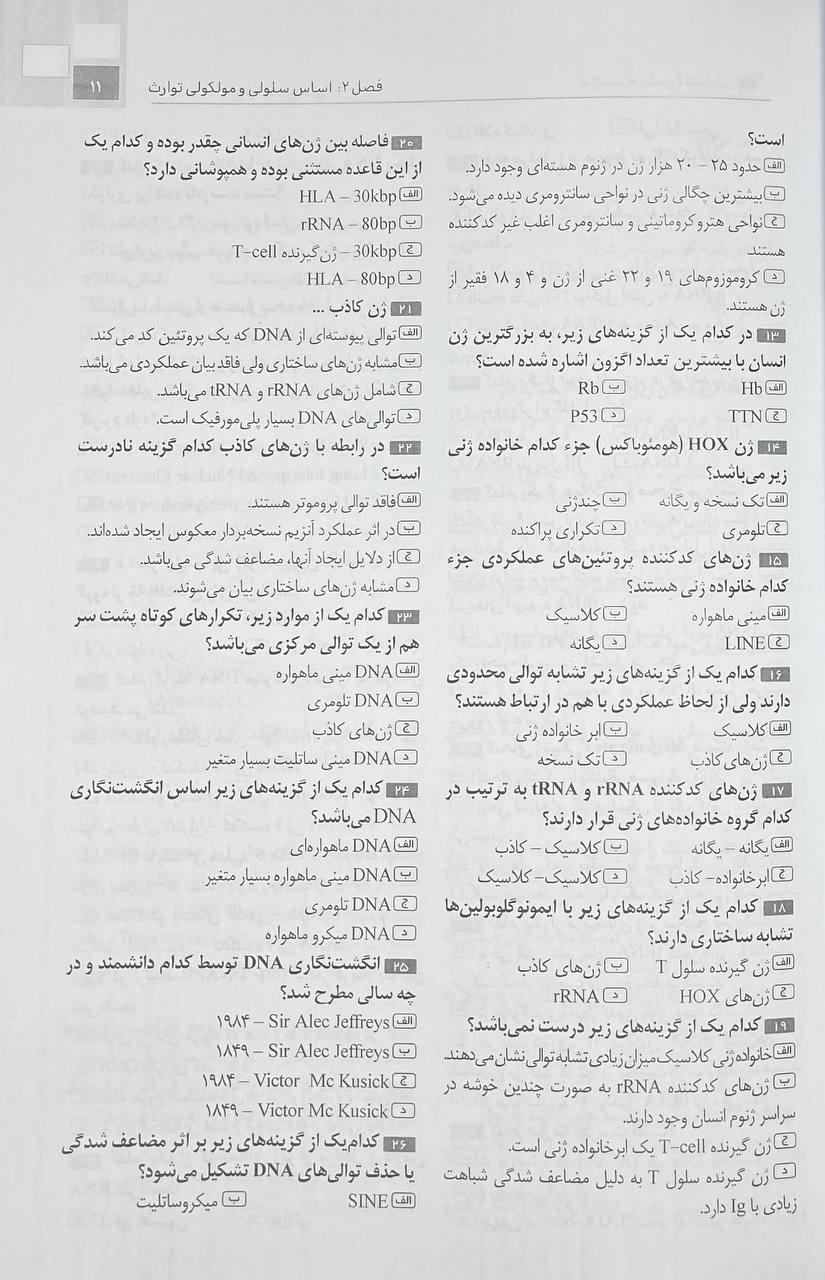 فصل ۲: اساس سلولی و مولکولی توارث
۱۱
است؟
الف حدود ۲۵ – ۲۰ هزار ژن در ژنوم هسته‌ای وجود دارد.
ب بیشترین چگالی ژنی در نواحی سانترومری دیده می‌شود.
ج نواحی هتروکروماتینی و سانترومری اغلب غیر کدکننده
هستند
د کروموزوم‌های ۱۹ و ۲۲ غنی از ژن و ۴ و ۱۸ فقیر از
ژن هستند.
۱۳ در کدام یک از گزینه‌های زیر، به بزرگترین ژن
انسان با بیشترین تعداد اگزون اشاره شده است؟
الف Hb ب Rb
ج TTN د P53
۱۴ ژن HOX (هومئوباکس) جزء کدام خانواده ژنی
زیر می‌باشد؟
الف تک نسخه و یگانه ب چندژنی
ج تلومری د تکراری پراکنده
۱۵ ژن‌های کدکننده پروتئین‌های عملکردی جزء
کدام خانواده ژنی هستند؟
الف مینی ماهواره ب کلاسیک
ج LINE د یگانه
۱۶ کدام یک از گزینه‌های زیر تشابه توالی محدودی
دارند ولی از لحاظ عملکردی با هم در ارتباط هستند؟
الف کلاسیک ب ابر خانواده ژنی
ج ژن‌های کاذب د تک نسخه
۱۷ ژن‌های کدکننده rRNA و tRNA به ترتیب در
کدام گروه خانواده‌های ژنی قرار دارند؟
الف یگانه – یگانه ب کلاسیک – کاذب
ج ابرخانواده– کاذب د کلاسیک– کلاسیک
۱۸ کدام یک از گزینه‌های زیر با ایمونوگلوبولین‌ها
تشابه ساختاری دارند؟
الف ژن گیرنده سلول T ب ژن‌های کاذب
ج ژن‌های HOX د rRNA
۱۹ کدام یک از گزینه‌های زیر درست نمی‌باشد؟
الف خانواده ژنی کلاسیک میزان زیادی تشابه توالی نشان می‌دهند.
ب ژن‌های کدکننده rRNA به صورت چندین خوشه در
سراسر ژنوم انسان وجود دارند.
ج ژن گیرنده T-cell یک ابرخانواده ژنی است.
د ژن گیرنده سلول T به دلیل مضاعف شدگی شباهت
زیادی با Ig دارد.
۲۰ فاصله بین ژن‌های انسانی چقدر بوده و کدام یک
از این قاعده مستثنی بوده و همپوشانی دارد؟
الف HLA – 30kbp
ب rRNA – 80bp
ج 30kbp – ژن گیرنده T-cell
د HLA – 80bp
۲۱ ژن کاذب ...
الف توالی پیوسته‌ای از DNA که یک پروتئین کد می‌کند.
ب مشابه ژن‌های ساختاری ولی فاقد بیان عملکردی می‌باشد.
ج شامل ژن‌های rRNA و tRNA می‌باشد.
د توالی‌های DNA بسیار پلی‌مورفیک است.
۲۲ در رابطه با ژن‌های کاذب کدام گزینه نادرست
است؟
الف فاقد توالی پروموتر هستند.
ب در اثر عملکرد آنزیم نسخه‌بردار معکوس ایجاد شده‌اند.
ج از دلایل ایجاد آنها، مضاعف شدگی می‌باشد.
د مشابه ژن‌های ساختاری بیان می‌شوند.
۲۳ کدام یک از موارد زیر، تکرارهای کوتاه پشت سر
هم از یک توالی مرکزی می‌باشد؟
الف DNA مینی ماهواره
ب DNA تلومری
ج ژن‌های کاذب
د DNA مینی ساتلیت بسیار متغیر
۲۴ کدام یک از گزینه‌های زیر اساس انگشت‌نگاری
DNA می‌باشد؟
الف DNA ماهواره‌ای
ب DNA مینی ماهواره بسیار متغیر
ج DNA تلومری
د DNA میکرو ماهواره
۲۵ انگشت‌نگاری DNA توسط کدام دانشمند و در
چه سالی مطرح شد؟
الف Sir Alec Jeffreys – ۱۹۸۴
ب Sir Alec Jeffreys – ۱۸۴۹
ج Victor Mc Kusick – ۱۹۸۴
د Victor Mc Kusick – ۱۸۴۹
۲۶ کدام‌یک از گزینه‌های زیر بر اثر مضاعف شدگی
یا حذف توالی‌های DNA تشکیل می‌شود؟
الف SINE ب میکروساتلیت